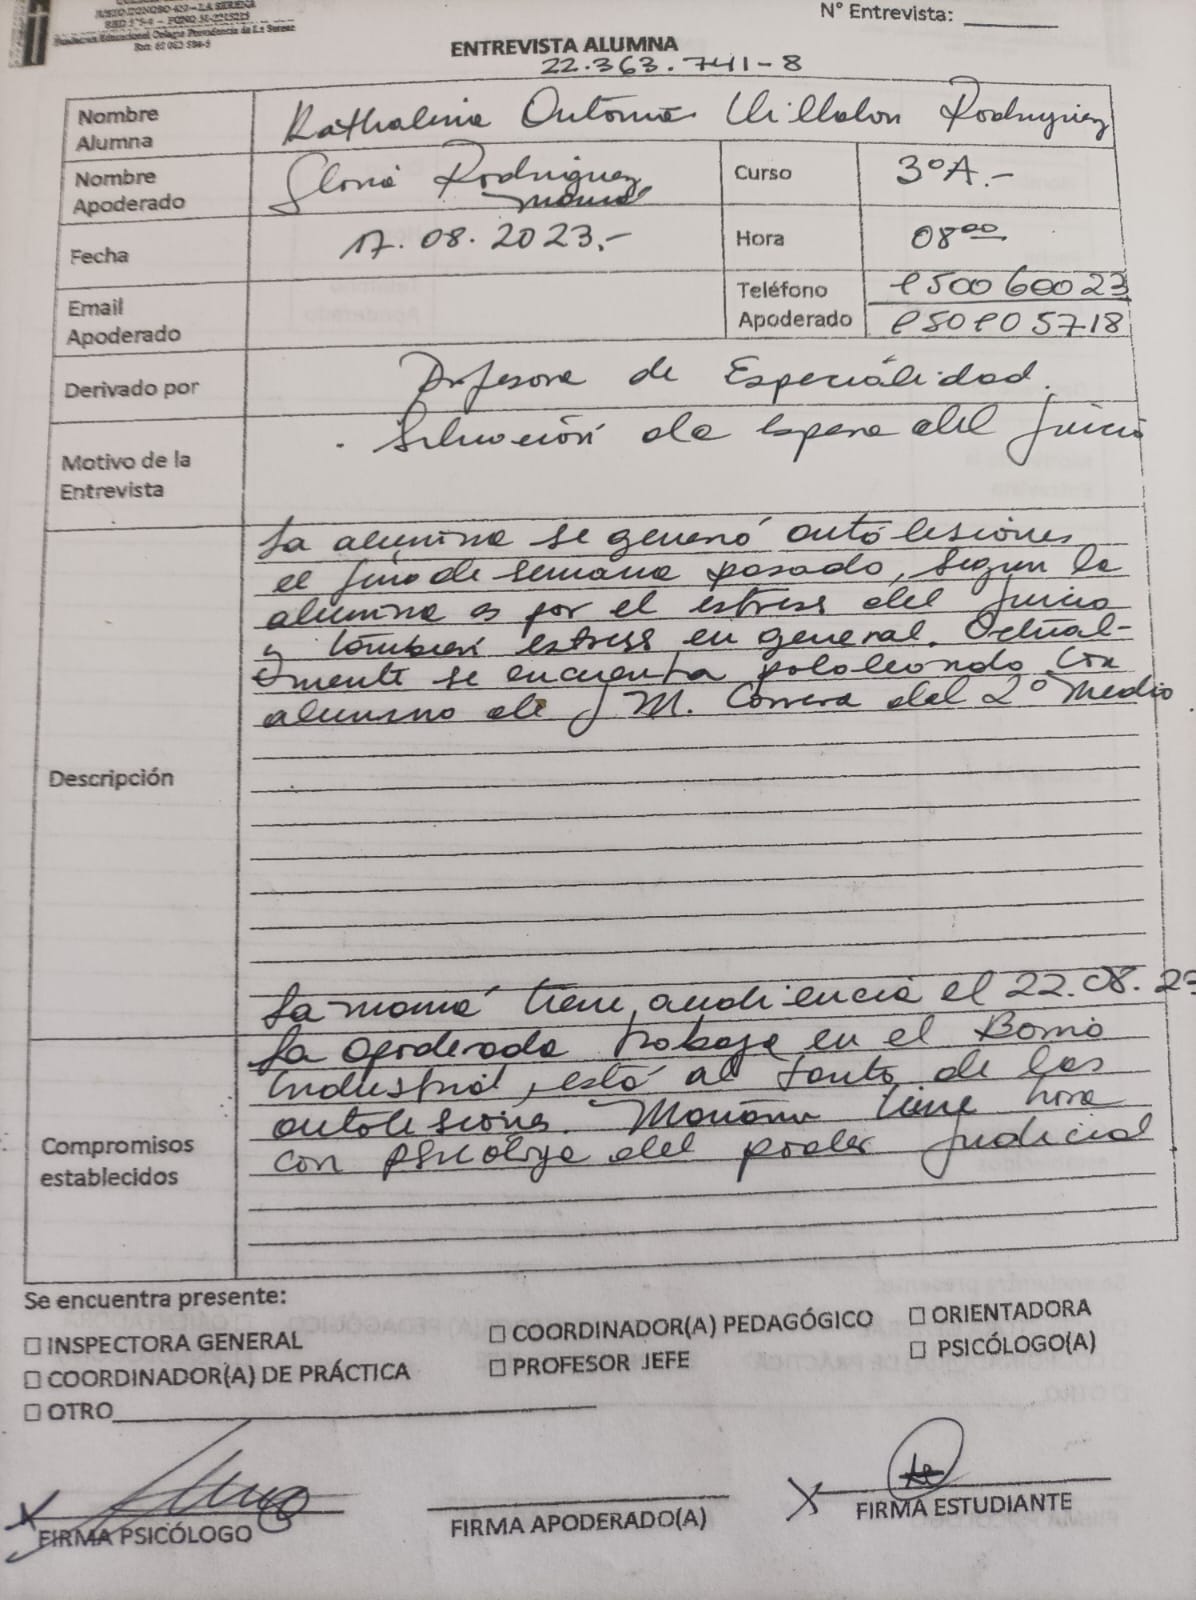 JUSTO DONOSO 420 – LA SERENA
RBD 575-4 – FONO 51-2215215
Fundación Educacional Colegio Providencia de La Serena
N° Entrevista: ________
ENTREVISTA ALUMNA
22.363.741-8
Nombre Alumna Kathalina Antonia Villalon Rodriguez
Nombre Apoderado Gloria Rodriguez mamá Curso 3°A.-
Fecha 17.08.2023.- Hora 08:00
Email Apoderado Teléfono Apoderado 950060023
950905718
Derivado por Profesora de Especialidad.
Motivo de la Entrevista . Situación de espera del juicio
Descripción
La alumna se generó autolesiones
el fin de semana pasado, según la
alumna es por el estress del juicio
y también estress en general. Actual-
mente se encuentra pololeando con
alumno de J M. Carrera del 2° medio
La mamá tiene audiencia el 22.08.23
Compromisos establecidos
La apoderada trabaja en el Barrio
Industrial, está al tanto de las
autolesiones. Mañana tiene hora
con psicóloga del poder judicial
Se encuentra presente:
☐ INSPECTORA GENERAL ☐ COORDINADOR(A) PEDAGÓGICO ☐ ORIENTADORA
☐ COORDINADOR(A) DE PRÁCTICA ☐ PROFESOR JEFE ☐ PSICÓLOGO(A)
☐ OTRO
X X
FIRMA PSICÓLOGO FIRMA APODERADO(A) FIRMA ESTUDIANTE